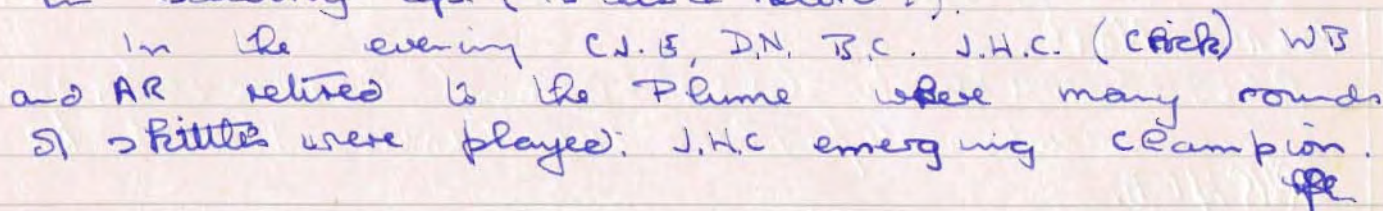 In the evening C.J.E, D.N. B.C. J.H.C. (Chick) WB
and AR retired to the Plume where many rounds
of skittles were played: J.H.C emerging champion.